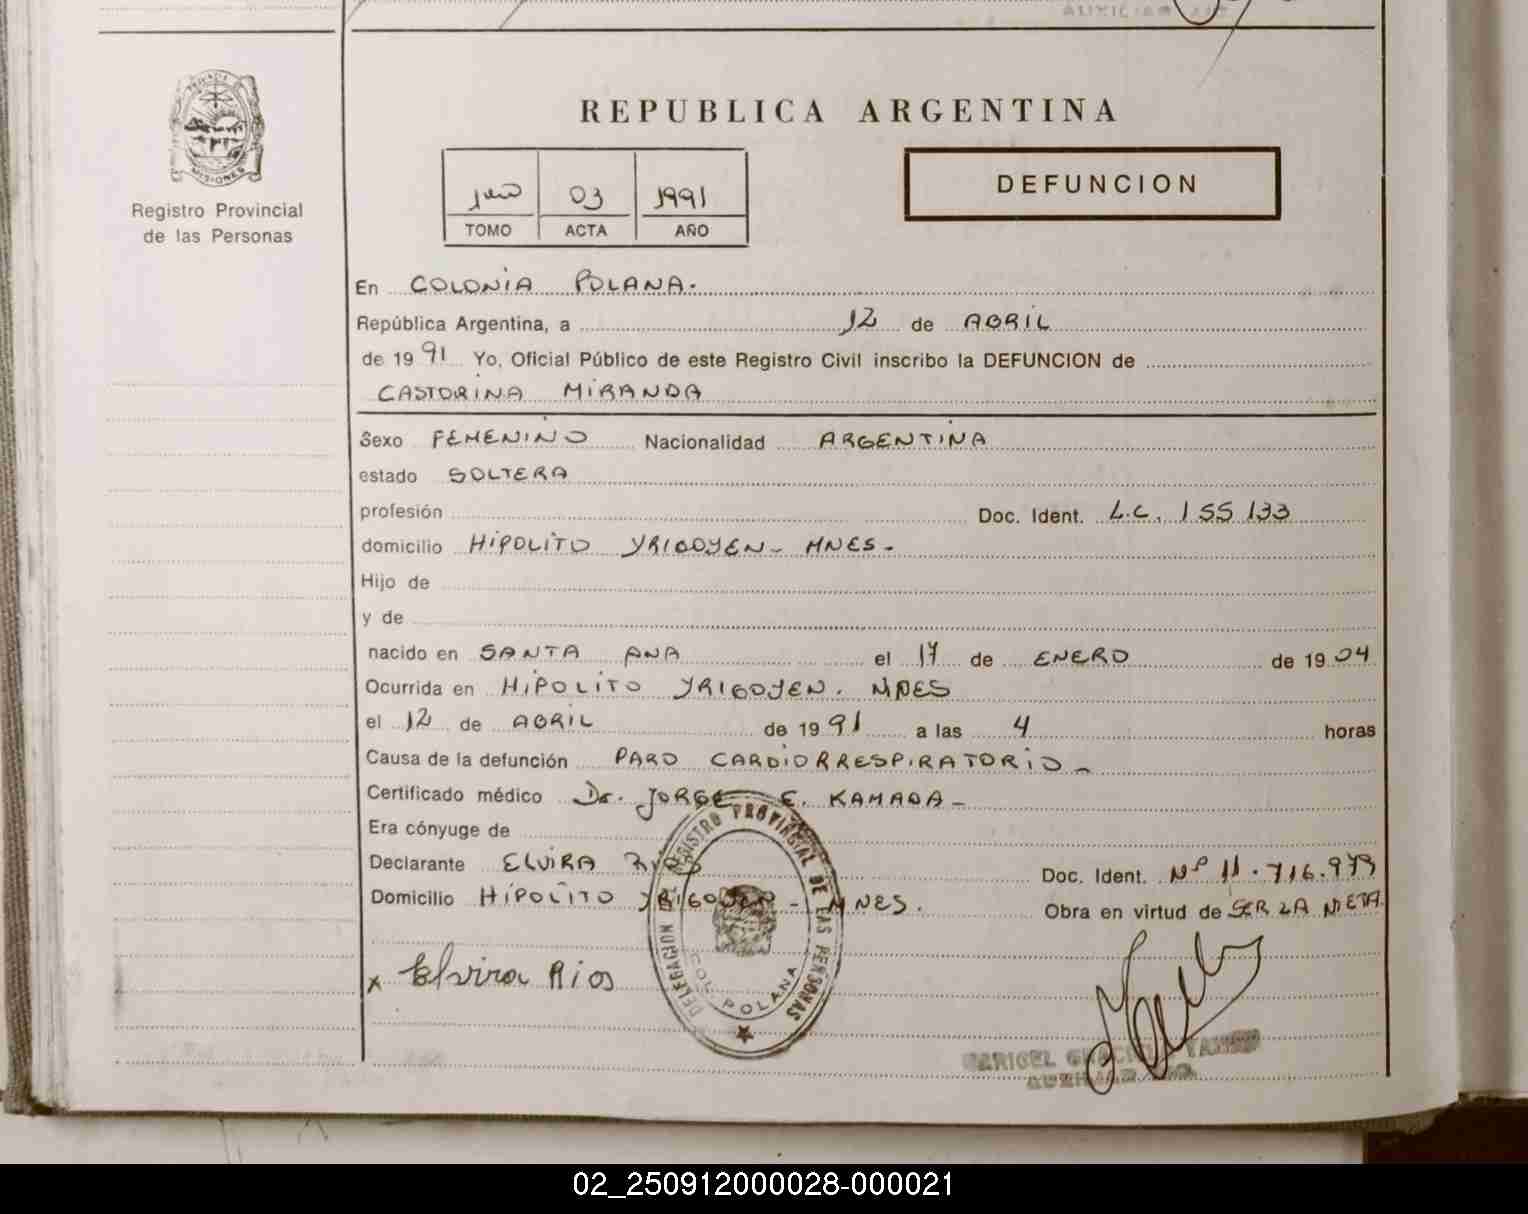 AUXILIAR
PROVINCIA
MISIONES
Registro Provincial
de las Personas
REPUBLICA ARGENTINA
03 1991
TOMO ACTA AÑO
DEFUNCION
En COLONIA POLANA.
República Argentina, a 12 de ABRIL
de 1991 Yo, Oficial Público de este Registro Civil inscribo la DEFUNCION de
CASTORINA MIRANDA
Sexo FEMENINO Nacionalidad ARGENTINA
estado SOLTERA
profesión Doc. Ident. L.C. 155133
domicilio HIPOLITO YRIGOYEN - MNES -
Hijo de
y de
nacido en SANTA ANA el 17 de ENERO de 1904
Ocurrida en HIPOLITO YRIGOYEN. MNES
el 12 de ABRIL de 1991 a las 4 horas
Causa de la defunción PARO CARDIORRESPIRATORIO -
Certificado médico Dr. JORGE E. KAMADA -
Era cónyuge de
Declarante ELVIRA RIOS Doc. Ident. Nº 11.716.973
Domicilio HIPOLITO YRIGOYEN - MNES. Obra en virtud de SER LA NIETA
DELEGACION DEL REGISTRO PROVINCIAL DE LAS PERSONAS
COL. POLANA
x Elvira Rios
02_250912000028-000021